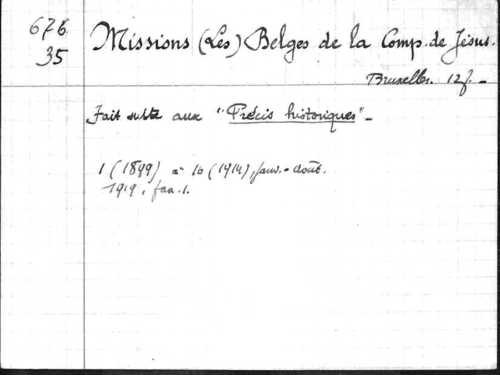 676 Missions (Les) Belges de la Comp. de Jésus.
35
Bruxelles. 12 f. -
Fait suite aux "Précis historiques" -
1 (1899) - 16 (1914), janv. - août.
1919, fasc. 1.